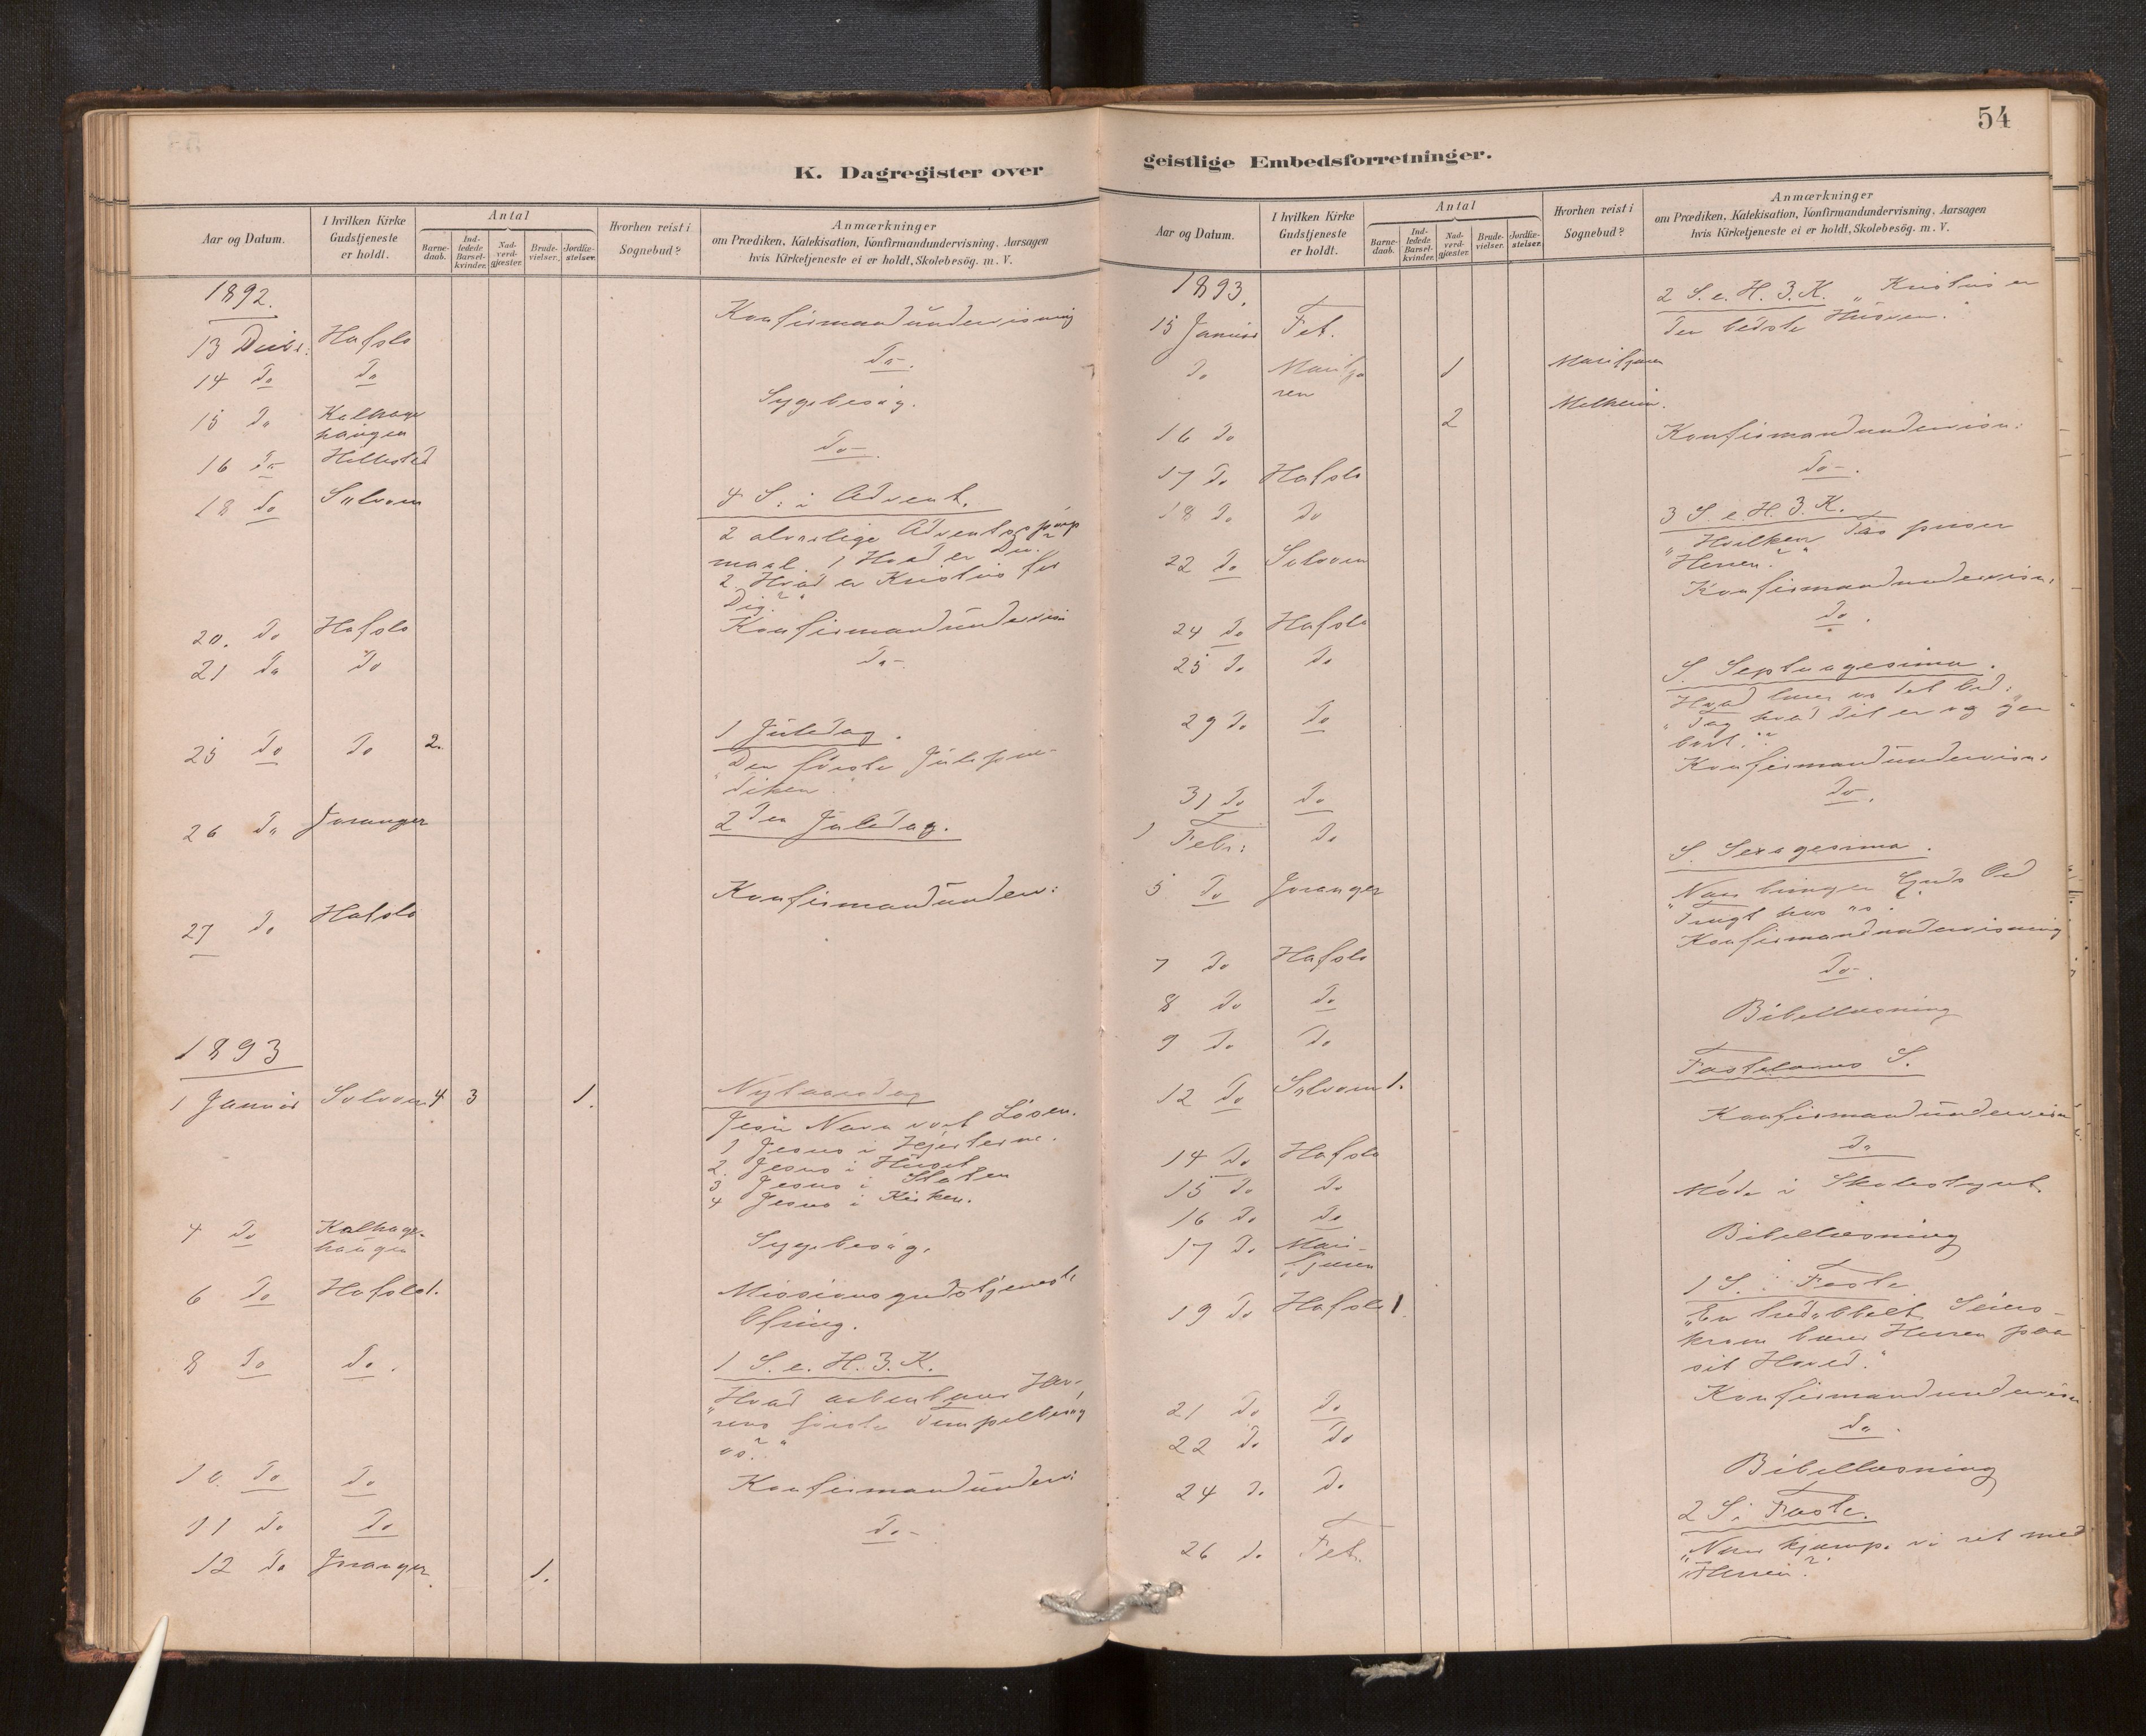 54
K. Dagregister over
Aar og Datum.
I hvilken Kirke Gudstjeneste er holdt.
Antal
Barne-daab.
Ind-ledede Barsel-kvinder.
Nad-verd-gjæster.
Brude-vielser.
Jordfæ-stelser.
Hvorhen reist i Sognebud?
Anmærkninger
om Prædiken, Katekisation, Konfirmandundervisning, Aarsagen
hvis Kirketjeneste ei er holdt, Skolebesög. m. V.
1892.
Konfirmandundervisning
13 Decbr. Hafslo
14 do do do-.
15 do Kalhage Sygebesøg.
haugen
16 do Hillestad do-.
18 do Solvorn 4 S. i Advent.
2 alvorlige Adventsspörs
maal. 1 Hvad er Du.
2. Hvad er Kristus for
Dig?"
20. do Hafslo Konfirmandundervisn
21 do do do-.
25 do do 2. 1 Juledag.
"Den første Julepræ-
diken"
26 do Joranger 2den Juledag.
27 do Hafslo Konfirmandunderv:
1893
1 Januar Solvorn 4 3 1. Nytaarsdag
Jesu Navn vort Løsen.
1 Jesus i Hjerterne.
2. Jesus i Huset
3 Jesus i Staten
4 Jesus i Kirken.
4 do Kalhage- Sygebesøg.
haugen
6 do Hafslo 1. Missionsgudstjeneste
Ofring.
8 do do. 1 S. e. H. 3. K.
"Hvad aabenbarer Her-
rens første Tempelbesøg
os?"
10. do do Konfirmandunderv:
11 do do do-
12 do Joranger 1.
geistlige Embedsforretninger.
Aar og Datum.
I hvilken Kirke Gudstjeneste er holdt.
Antal
Barne-daab.
Ind-ledede Barsel-kvinder.
Nad-verd-gjæster.
Brude-vielser.
Jordfæ-stelser.
Hvorhen reist i Sognebud?
Anmærkninger
om Prædiken, Katekisation, Konfirmandundervisning, Aarsagen
hvis Kirketjeneste ei er holdt, Skolebesög. m. V.
1893.
2 S. e. H. 3. K. "Kristus er
15 Januar Fet. den bedste Husven."
do Marifjæ 1 Marifjæren
ren
16 do 2 Melheim.
17 do Hafslo Konfirmandundervisn:
18 do do do-.
22 do Solvorn 3 S. e. H. 3. K.
"Hvilken Tro priser
Herren?"
24 do Hafslo Konfirmandundervisn.
25 do do do.
29 do do S. Septuagesima.
Hvad lærer os det Ord:
"Tag hvad dit er og gaa
bort."?
31 do do Konfirmandundervisn.
1 Febr: do do-.
5 do Joranger S. Sexagesima.
"Naar bringer Guds Ord
Frugt hos os.
7 do Hafslo Konfirmandundervisning
8 do do do-.
9 do do Bibellæsning
12 do Solvorn 1. Fastelavns S.
14 do Hafslo Konfirmandundervisn
15 do do do
16 do do Møde i Skolestyret
17 do Mari- Bibellæsning
fjæren
19 do Hafslo 1 1 S. i Faste
"En tredobbelt Seiers-
krone bærer Herren paa
sit Hoved."
21 do do Konfirmandundervisn
22 do do do.
24 do do Bibellæsning
26 do Fet. 2 S. i Faste.
"Naar kjæmpe vi ret med
Herren?"